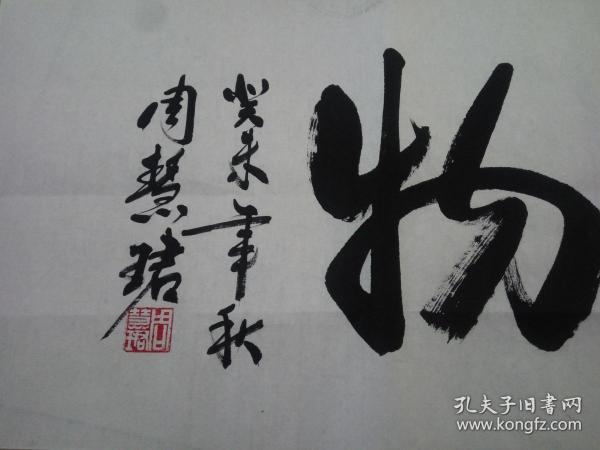 物
癸未年秋
周慧珺
周慧珺
孔夫子旧書网
www.kongfz.com